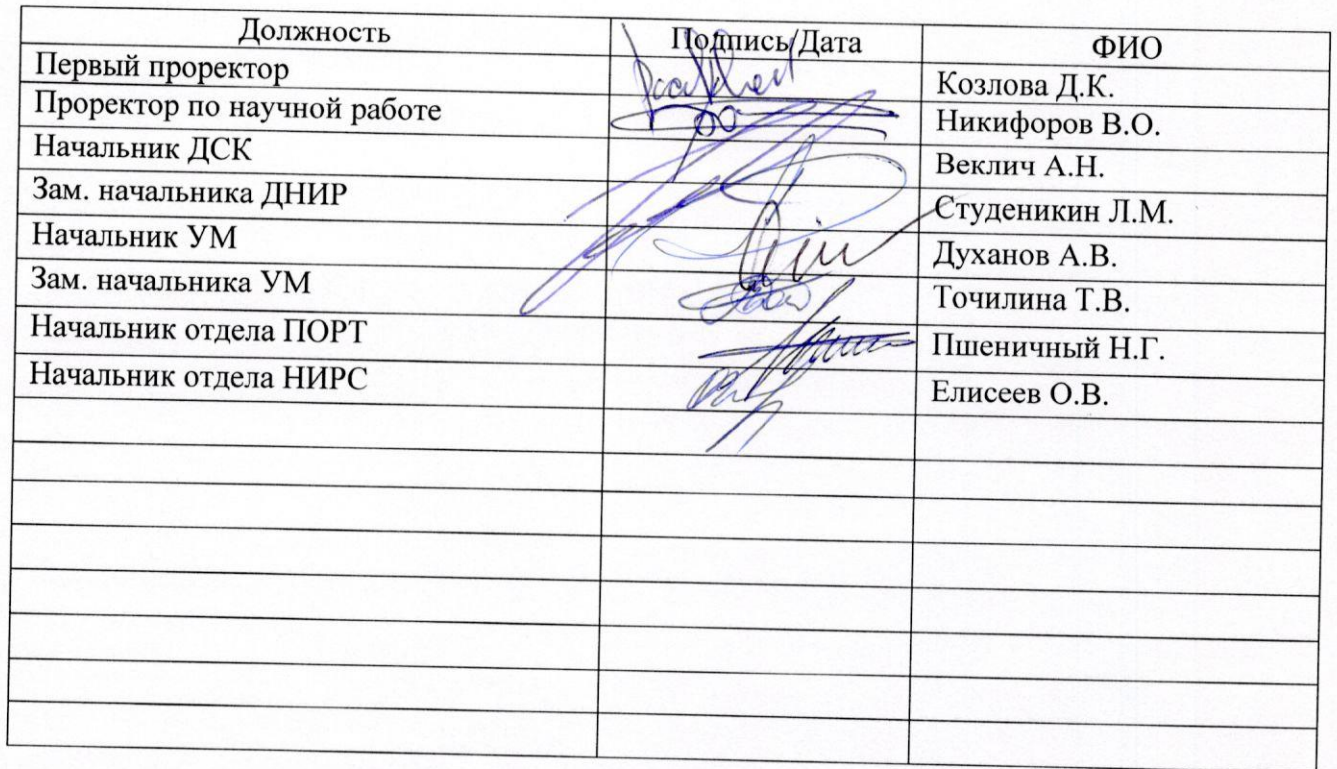 Должность Подпись/Дата ФИО
Первый проректор Козлова Д.К.
Проректор по научной работе Никифоров В.О.
Начальник ДСК Веклич А.Н.
Зам. начальника ДНИР Студеникин Л.М.
Начальник УМ Духанов А.В.
Зам. начальника УМ Точилина Т.В.
Начальник отдела ПОРТ Пшеничный Н.Г.
Начальник отдела НИРС Елисеев О.В.